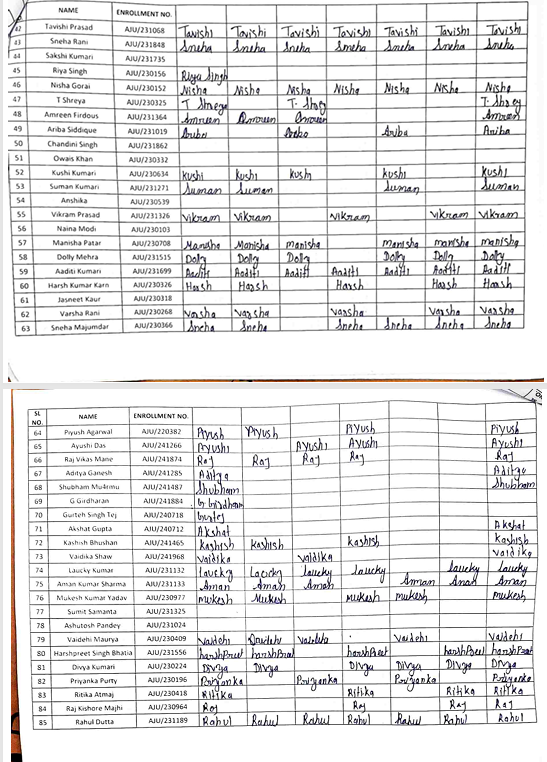 NAME ENROLLMENT NO.
42 Tavishi Prasad AJU/231068 Tavishi Tavishi Tavishi Tavishi Tavishi Tavishi Tavishi
43 Sneha Rani AJU/231848 Sneha Sneha Sneha Sneha Sneha Sneha Sneha
44 Sakshi Kumari AJU/231735
45 Riya Singh AJU/230156 Riya Singh
46 Nisha Gorai AJU/230152 Nisha Nisha Nisha Nisha Nisha Nisha Nisha
47 T Shreya AJU/230325 T Shreya T. Shrey T. Shrey
48 Amreen Firdous AJU/231364 Amreen Amreen Amreen Amreen
49 Ariba Siddique AJU/231019 Ariba Ariba Ariba Ariba
50 Chandini Singh AJU/231862
51 Owais Khan AJU/230332
52 Kushi Kumari AJU/230634 kushi kushi kushi kushi kushi
53 Suman Kumari AJU/231271 Suman Suman Suman Suman
54 Anshika AJU/230539
55 Vikram Prasad AJU/231326 Vikram Vikram Vikram Vikram Vikram
56 Naina Modi AJU/230103
57 Manisha Patar AJU/230708 Manisha Manisha manisha manisha manisha manisha
58 Dolly Mehra AJU/231515 Dolly Dolly Dolly Dolly Dolly Dolly
59 Aaditi Kumari AJU/231699 Aaditi Aaditi Aaditi Aaditi Aaditi Aaditi Aaditi
60 Harsh Kumar Karn AJU/230326 Harsh Harsh Harsh Harsh Harsh
61 Jasneet Kaur AJU/230318
62 Varsha Rani AJU/230268 Varsha Varsha Varsha Varsha Varsha
63 Sneha Majumdar AJU/230366 Sneha Sneha Sneha Sneha Sneha Sneha
SL NO. NAME ENROLLMENT NO.
64 Piyush Agarwal AJU/220382 Piyush Piyush Piyush Piyush
65 Ayushi Das AJU/241266 Ayushi Ayushi Ayushi Ayushi
66 Raj Vikas Mane AJU/241874 Raj Raj Raj Raj Raj
67 Aditya Ganesh AJU/241285 Aditya Aditya
68 Shubham AJU/241487 Shubham Shubham
69 G Girdharan AJU/241884 G Girdharan
70 Gurteh Singh Tej AJU/240718
71 Akshat Gupta AJU/240712 Akshat Akshat
72 Kashish Bhushan AJU/241465 Kashish Kashish Kashish Kashish
73 Vaidika Shaw AJU/241968 Vaidika Vaidika Vaidika
74 Laucky Kumar AJU/231132 Laucky Laucky laucky laucky laucky laucky
75 Aman Kumar Sharma AJU/231133 Aman Aman Aman Aman Aman Aman
76 Mukesh Kumar Yadav AJU/230977 mukesh Mukesh mukesh mukesh mukesh
77 Sumit Samanta AJU/231325
78 Ashutosh Pandey AJU/231024
79 Vaidehi Maurya AJU/230409 Vaidehi Vaidehi Vaidehi Vaidehi Vaidehi
80 Harshpreet Singh Bhatia AJU/231556 harshPreet harshPreet harshPreet harshPreet harshPreet
81 Divya Kumari AJU/230224 Divya Divya Divya Divya Divya Divya
82 Priyanka Purty AJU/230196 Priyanka Priyanka Priyanka Priyanka
83 Ritika Atmaj AJU/230418 Ritika Ritika Ritika Ritika
84 Raj Kishore Majhi AJU/230964 Raj Raj Raj Raj
85 Rahul Dutta AJU/231189 Rahul Rahul Rahul Rahul Rahul Rahul Rahul